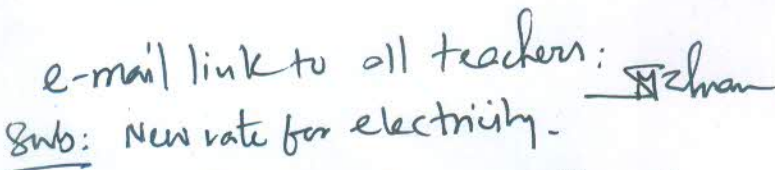 e-mail link to all teachers:
Sub: New rate for electricity.